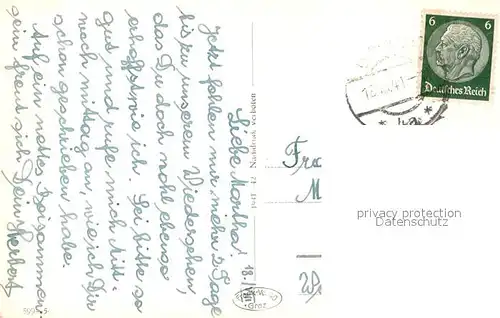 Liebe Martha!
Jetzt fehlen nur mehr 5 Tage
bis zu unserem Wiedersehen,
das Du doch wohl ebenso
erhoffst wie ich. Sei bitte so
gut und rufe mich Mitt-
woch mittag an, wie ich Dir
schon geschrieben habe.
Auf ein nettes Beisammen-
sein freut sich Dein Herbert
Nachdruck verboten
18.
Graz
6 6
Deutsches Reich
Fra
M
privacy protection
Datenschutz